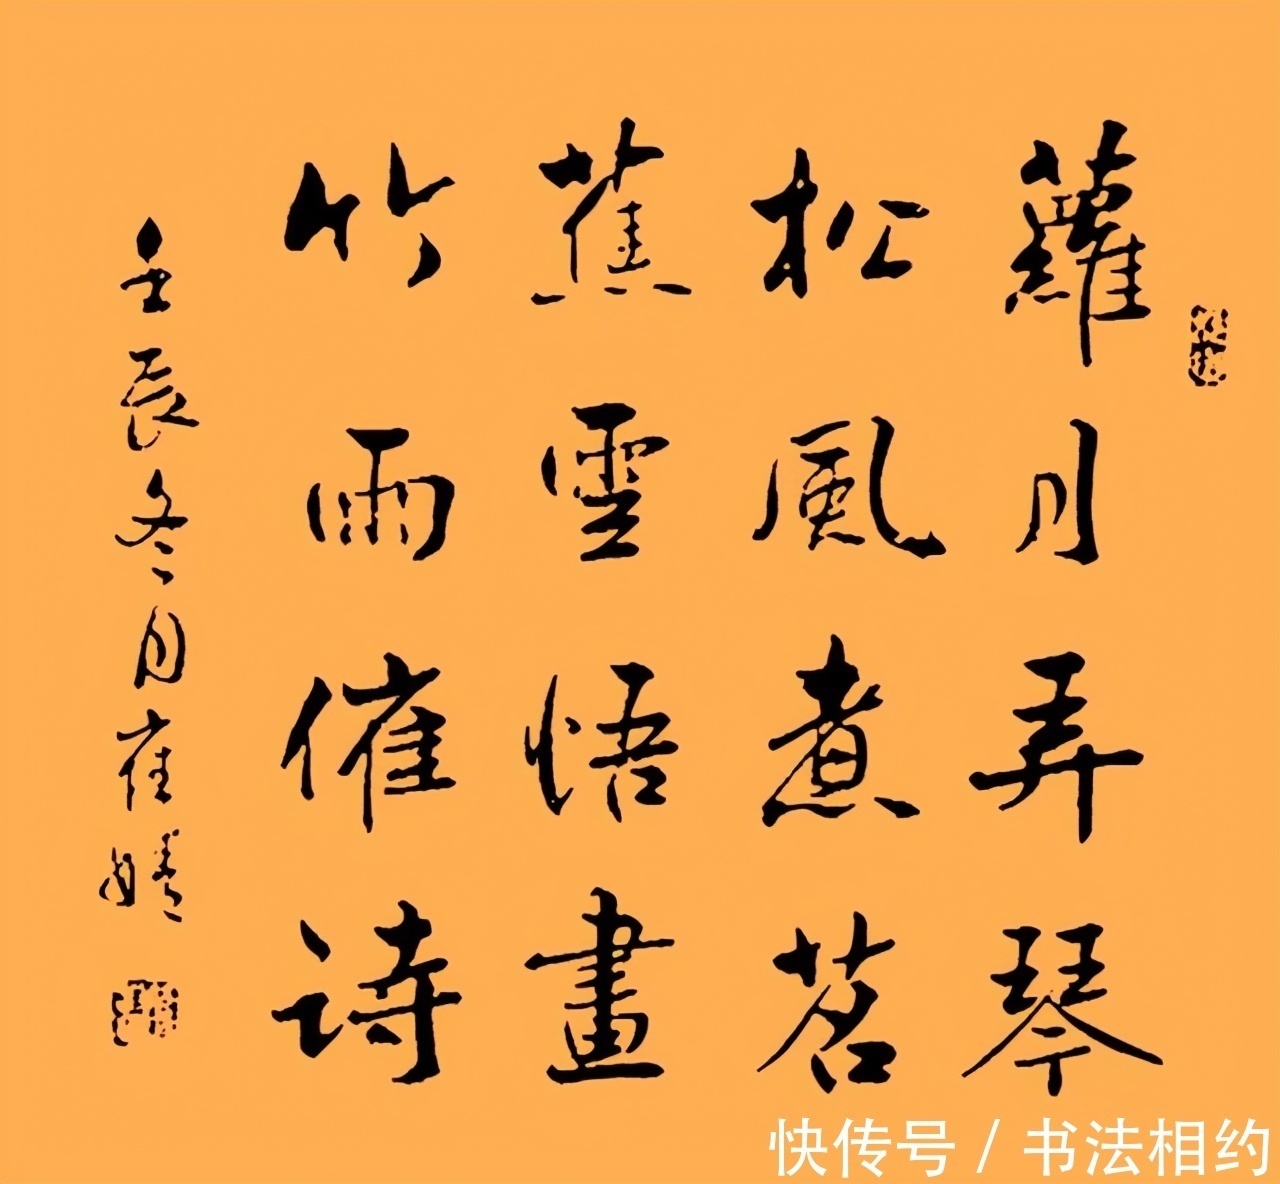 蘿月弄琴
松風煮茗
蕉雲悟畫
竹雨催诗
壬辰冬月崔婧
快传号 / 书法相约